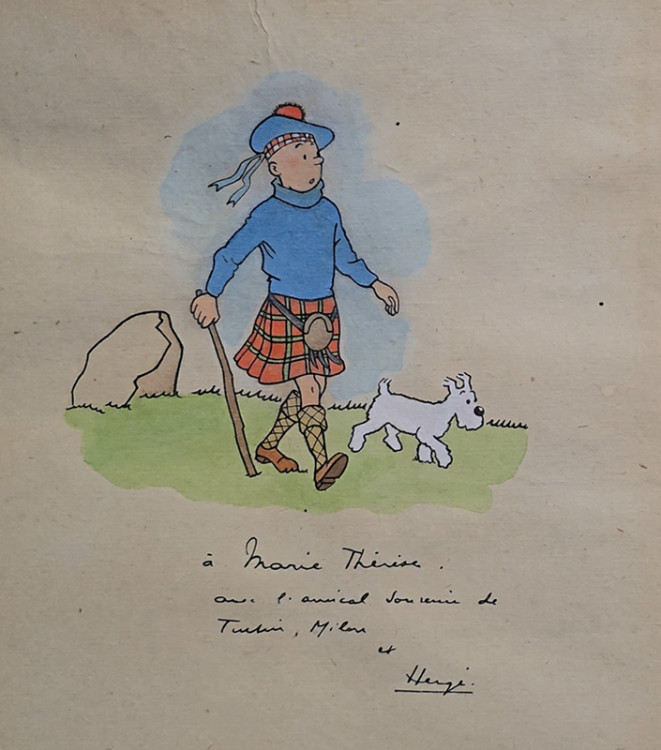 à Marie Thérèse.
avec l'amical souvenir de
Tintin, Milou
et
Hergé.